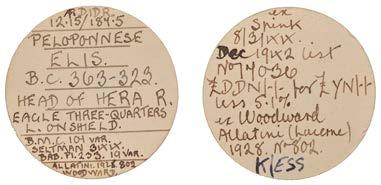 12.15/184.5
PELOPONNESE
ELIS.
B.C. 363-323.
HEAD OF HERA R.
EAGLE THREE-QUARTERS
L. ON SHIELD.
B.M.C. 101 VAR.
SELTMAN
BAB. PL. 233. 19 VAR.
ALLATINI. 1928. 802
WOODWARD.
ex
Spink
Dec 1942 list
No 74036
for
less 5.1%
ex Woodward
Allatini (Lucerne)
1928. No 802.
K/ESS